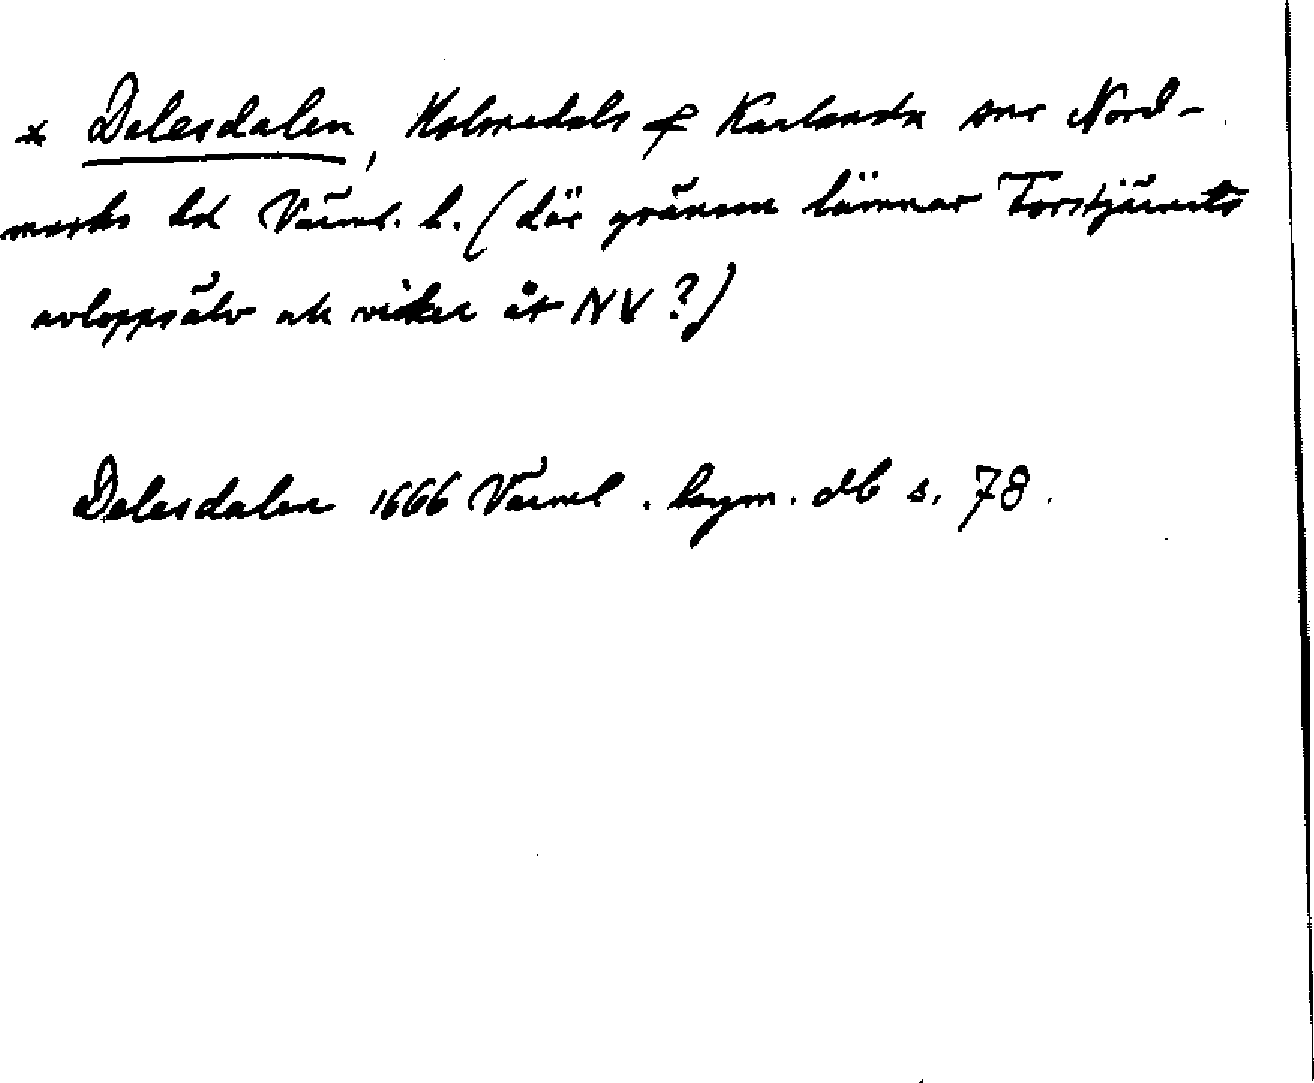 × Dalesdalen, Holmedals & Karlanda snr Nord-
marks hd Värml. l. (där gränsen lämnar Torstjärnets
avloppsälv och viker åt NV ?)
Dalesdalen 1666 Värml. legm. db s. 78.